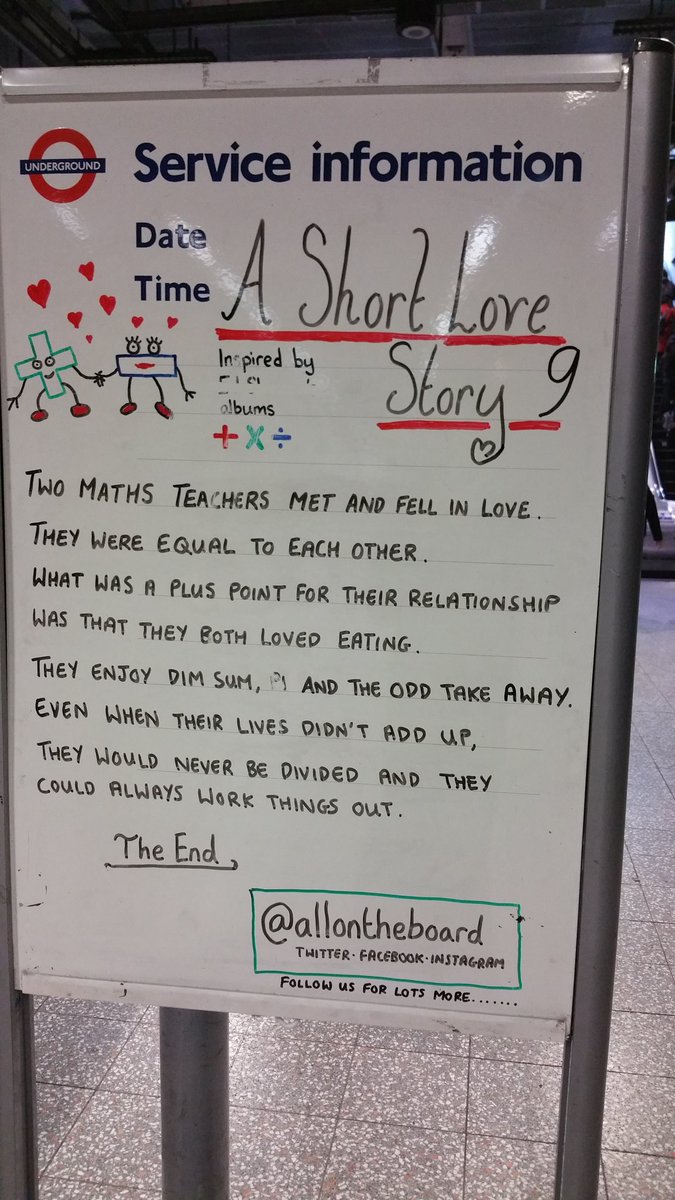 UNDERGROUND
Service information
Date
Time
A Short Love
Story 9
Inspired by
albums
+ x ÷
TWO MATHS TEACHERS MET AND FELL IN LOVE.
THEY WERE EQUAL TO EACH OTHER.
WHAT WAS A PLUS POINT FOR THEIR RELATIONSHIP
WAS THAT THEY BOTH LOVED EATING.
THEY ENJOY DIM SUM, AND THE ODD TAKE AWAY.
EVEN WHEN THEIR LIVES DIDN'T ADD UP,
THEY WOULD NEVER BE DIVIDED AND THEY
COULD ALWAYS WORK THINGS OUT.
The End
@allontheboard
TWITTER·FACEBOOK·INSTAGRAM
FOLLOW US FOR LOTS MORE.......